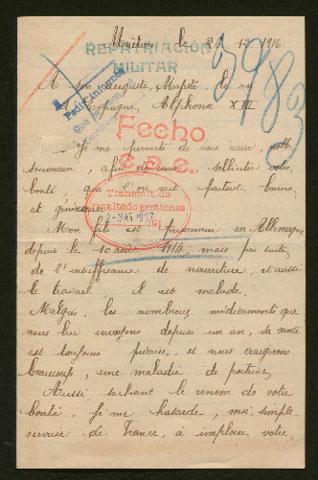 le 20 12 1916
REPATRIACIÓN
MILITAR
3983
A son Auguste, Majesté, le roi
d'Espagne, Alphonse XIII.
Pedir informes
Fecho
Je me permets de vous écrire,
souverain, afin de solliciter votre
bonté que l'on sait partout, bonne,
et généreuse.
Transmitido
resultado gestiones
2-MAR 1917
Mon fils est prisonnier en Allemagne
depuis le 10 août 1914, mais par suite,
de l'insuffisance de nourriture, et aussi
le travail. Il est malade.
Malgré, les nombreux médicaments que
nous lui envoyons depuis un an, sa santé
est toujours, et nous craignons
beaucoup, une maladie de poitrine,
Aussi, sachant le renom de votre
bonté, je me hasarde, moi, simple
ouvrier de France, à implorer votre,